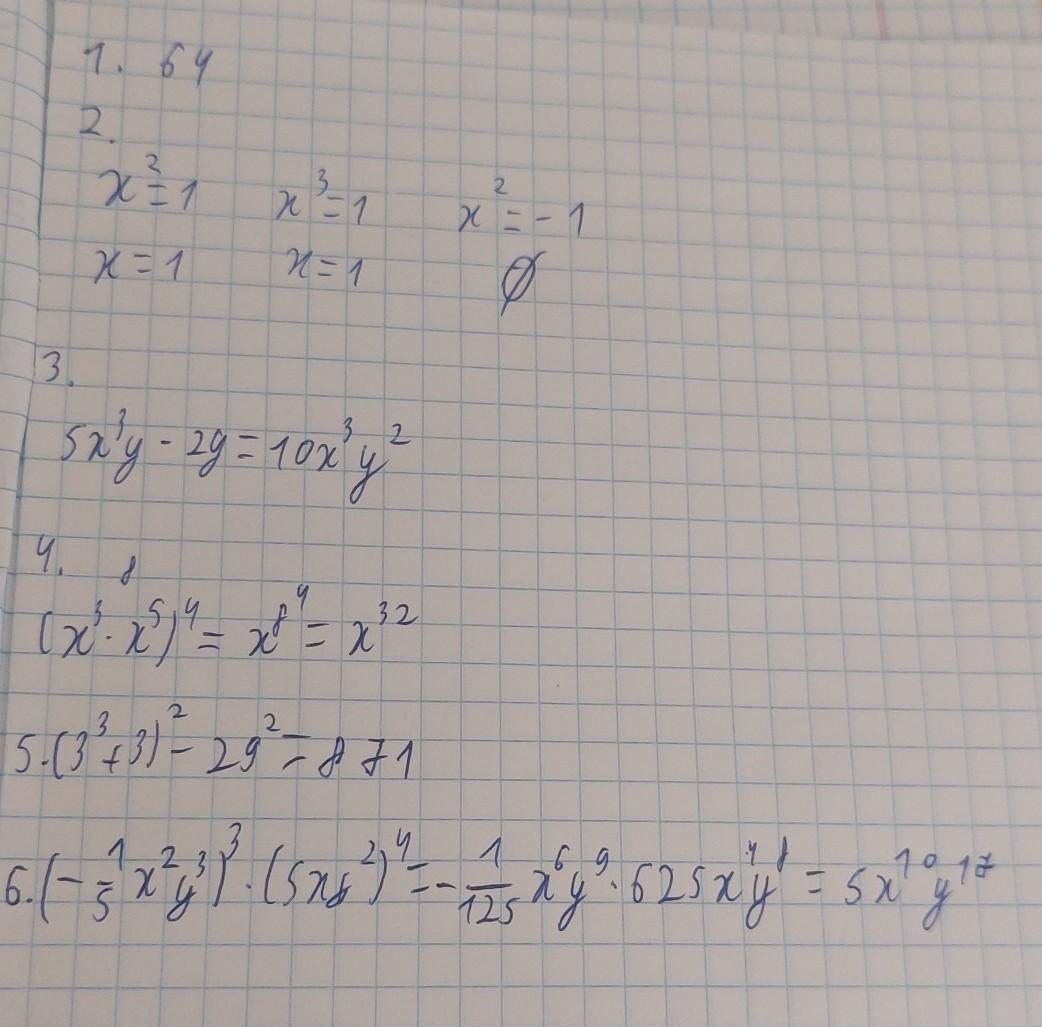 1. 64
2.
x² = 1 x³ = 1 x² = - 1
x = 1 x = 1 ∅
3.
5x³y - 2y = 10x³y²
4. 8
(x³ · x⁵)⁴ = x⁸⁴ = x³²
5. (3³ + 3)² - 29² = 871
6. (- 1/5 x² y³)³ · (5xy²)⁴ = - 1/125 x⁶ y⁹ · 625x⁴ y⁸ = 5x¹⁰ y¹⁷